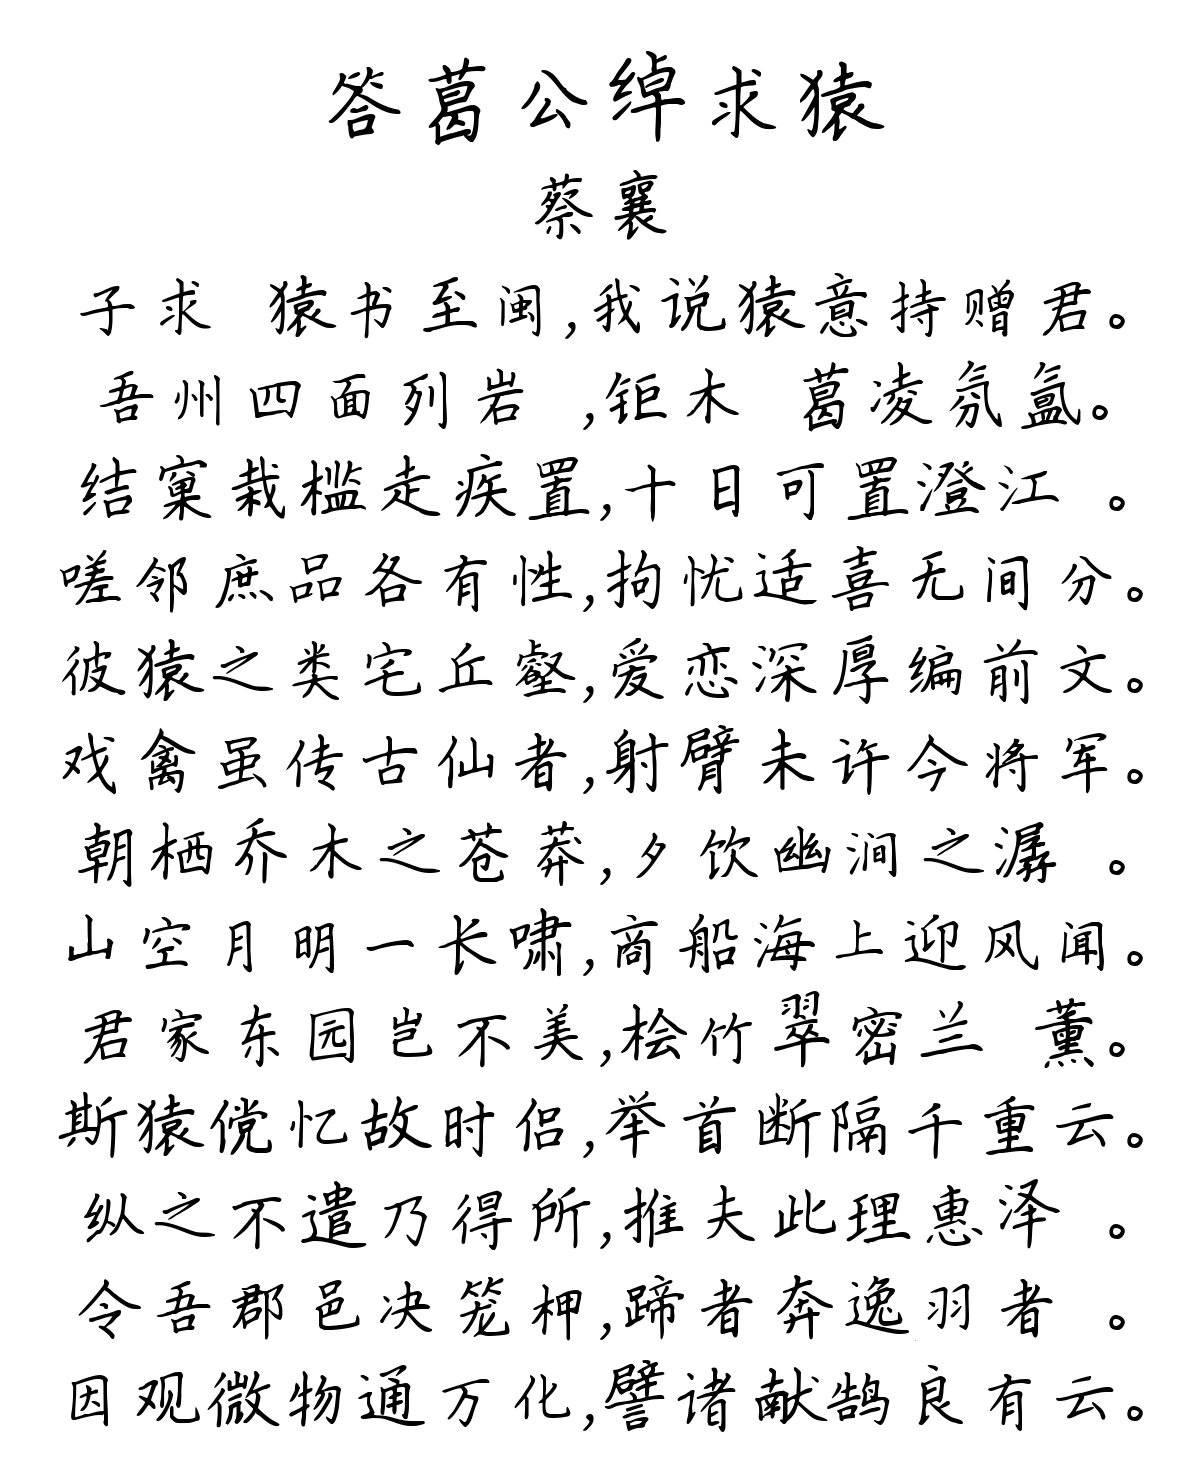 答葛公绰求猿
蔡襄
子求 猿书至闽,我说猿意持赠君。
吾州四面列岩 ,钜木 葛凌氛氲。
结窠栽槛走疾置,十日可置澄江 。
嗟邻庶品各有性,拘忧适喜无间分。
彼猿之类宅丘壑,爱恋深厚编前文。
戏禽虽传古仙者,射臂未许今将军。
朝栖乔木之苍莽,夕饮幽涧之潺 。
山空月明一长啸,商船海上迎风闻。
君家东园岂不美,桧竹翠密兰 薰。
斯猿傥忆故时侣,举首断隔千重云。
纵之不遣乃得所,推夫此理惠泽 。
令吾郡邑决笼柙,蹄者奔逸羽者 。
因观微物通万化,譬诸献鹄良有云。